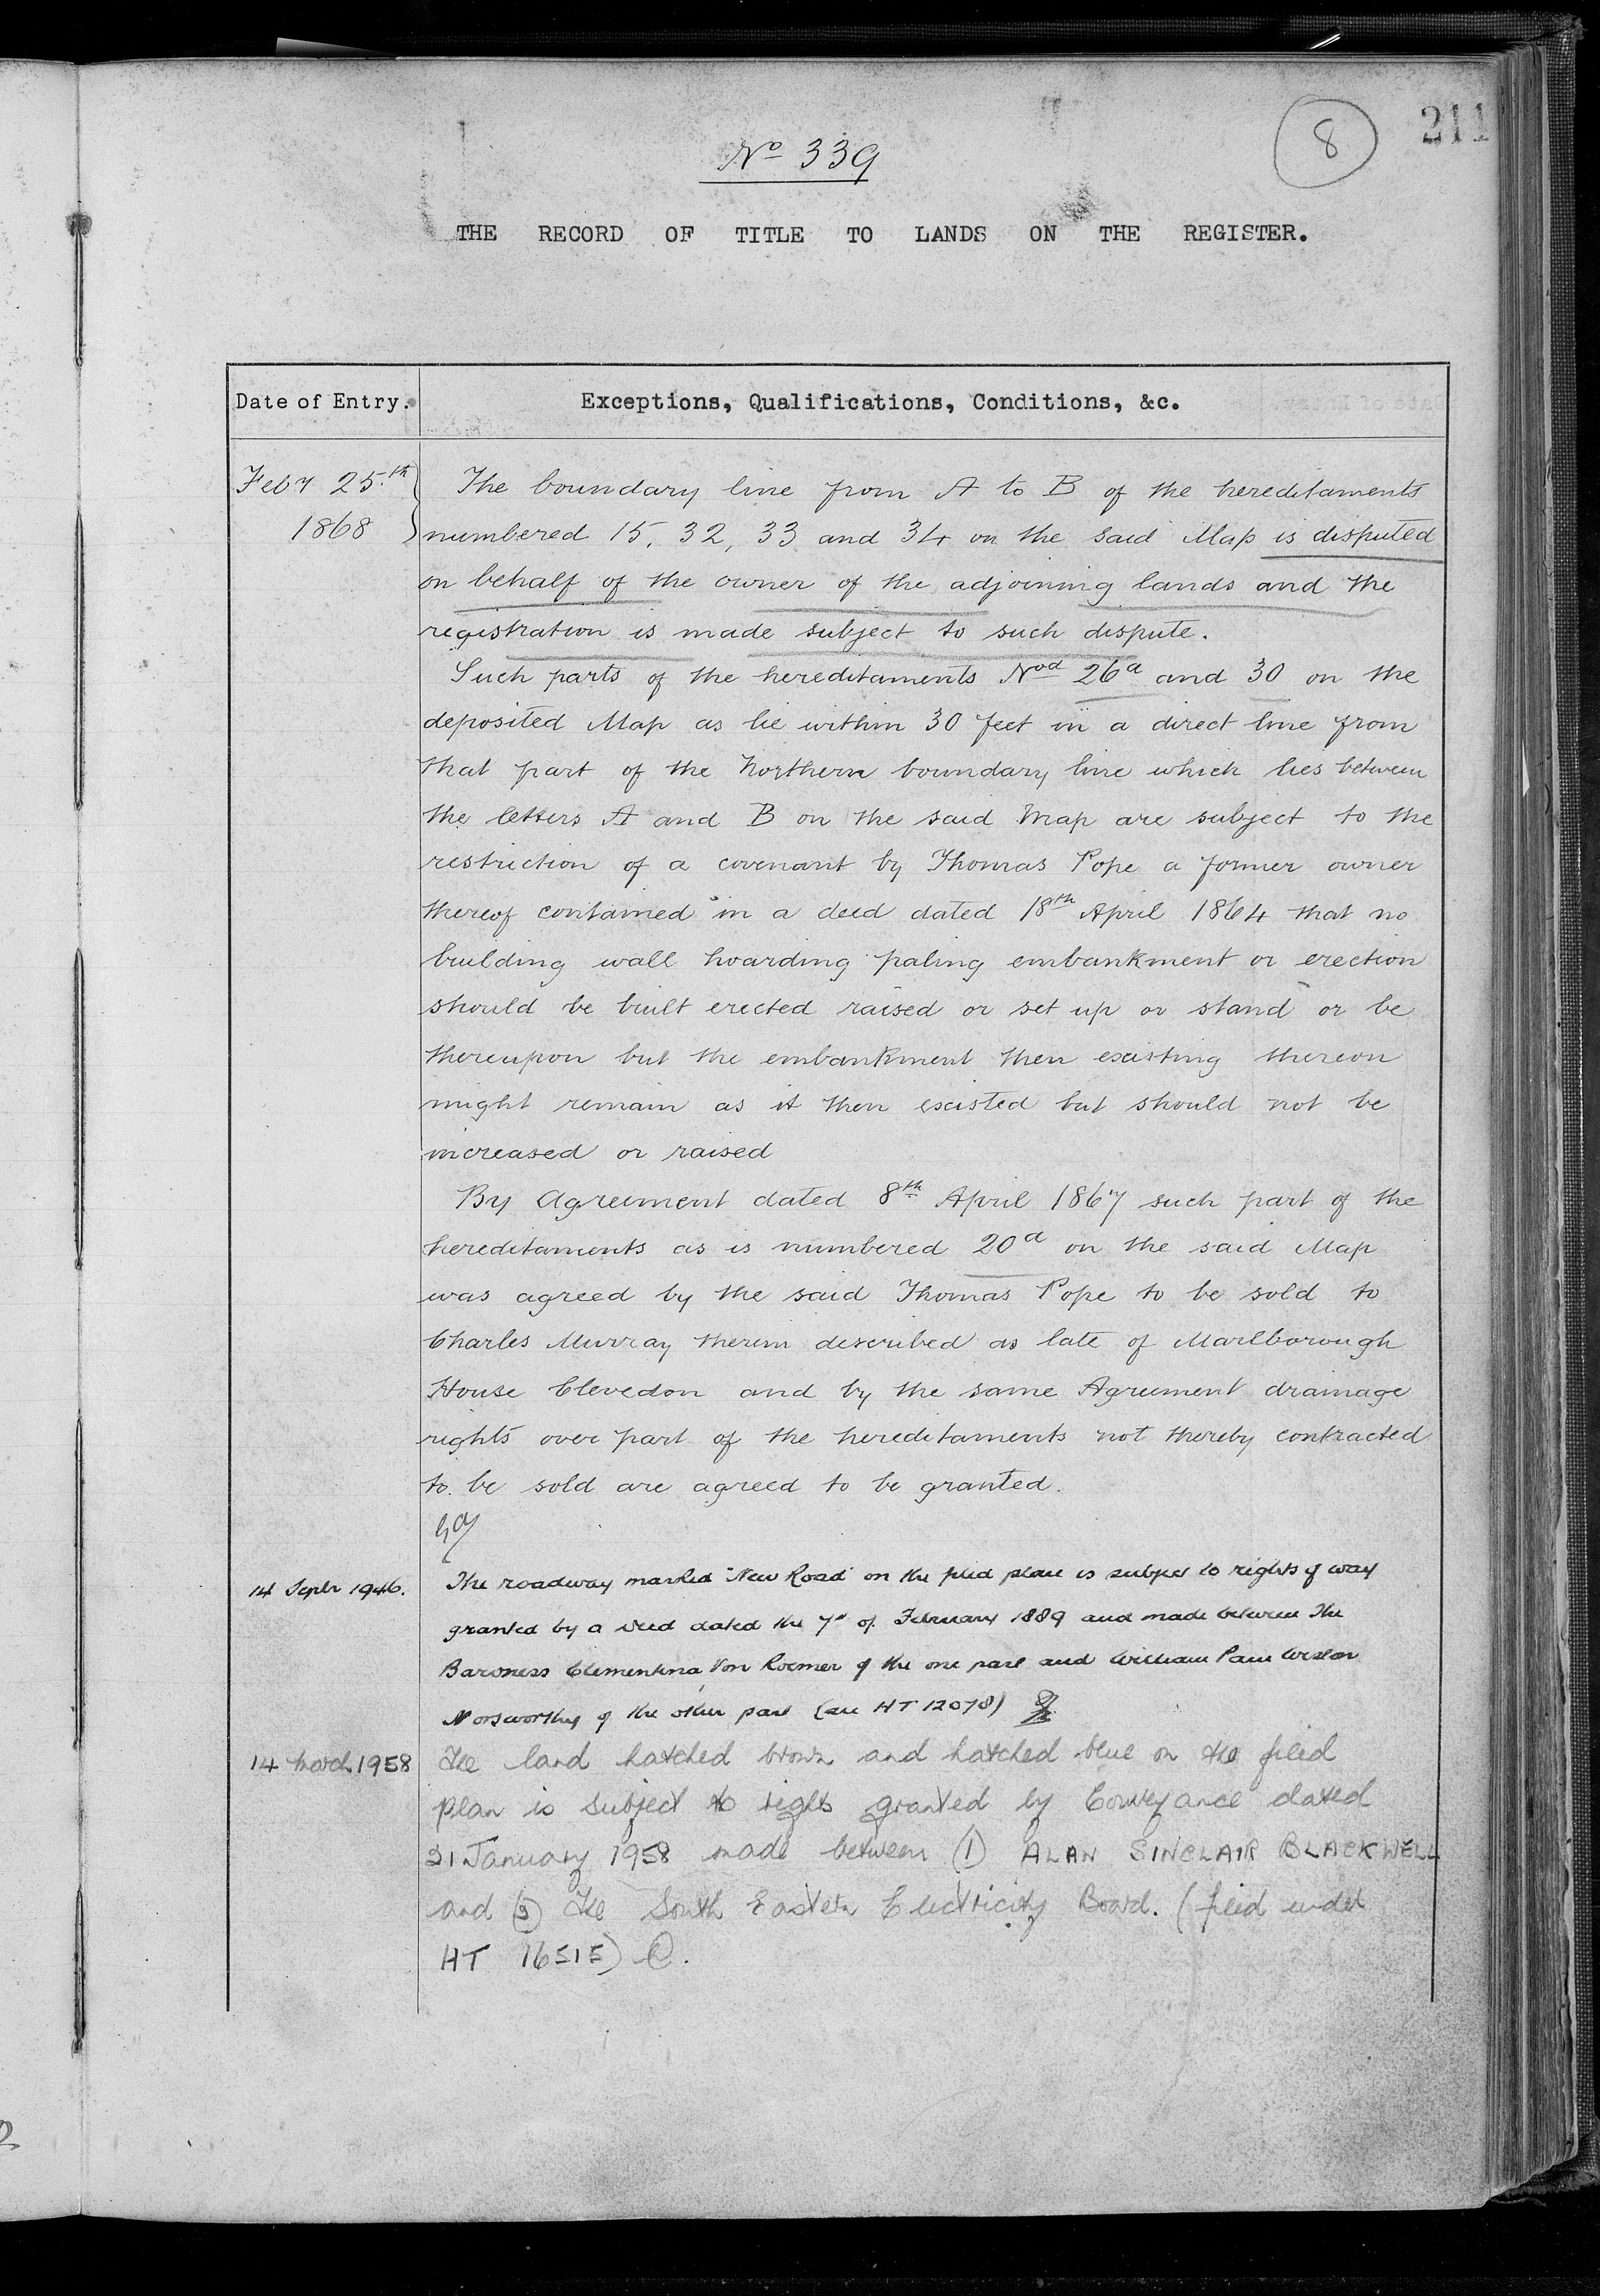 8
211
No 339
THE RECORD OF TITLE TO LANDS ON THE REGISTER.
Date of Entry.
Exceptions, Qualifications, Conditions, &c.
Feby 25th
1868
The boundary line from A to B of the hereditaments
numbered 15, 32, 33 and 34 on the said Map is disputed
on behalf of the owner of the adjoining lands and the
registration is made subject to such dispute.
Such parts of the hereditaments Nod 26a and 30 on the
deposited Map as lie within 30 feet in a direct line from
that part of the Northern boundary line which lies between
the letters A and B on the said Map are subject to the
restriction of a covenant by Thomas Pope a former owner
thereof contained in a deed dated 18th April 1864 that no
building wall hoarding paling embankment or erection
should be built erected raised or set up or stand or be
thereupon but the embankment then existing thereon
might remain as it then existed but should not be
increased or raised
By Agreement dated 8th April 1867 such part of the
hereditaments as is numbered 20a on the said Map
was agreed by the said Thomas Pope to be sold to
Charles Murray therein described as late of Marlborough
House Clevedon and by the same Agreement drainage
rights over part of the hereditaments not thereby contracted
to be sold are agreed to be granted.
14 Septr 1946.
The roadway marked "New Road" on the filed plan is subject to rights of way
granted by a Deed dated the 7th of February 1889 and made between The
Baroness Clementina Von Roemer of the one part and William Pain
Norsworthy of the other part (see HT 12078)
14 March 1958
The land hatched brown and hatched blue on the filed
plan is subject to rights granted by Conveyance dated
31 January 1958 made between (1) ALAN SINCLAIR BLACKWELL
and (2) The South Eastern Electricity Board. (filed under
HT 16515)